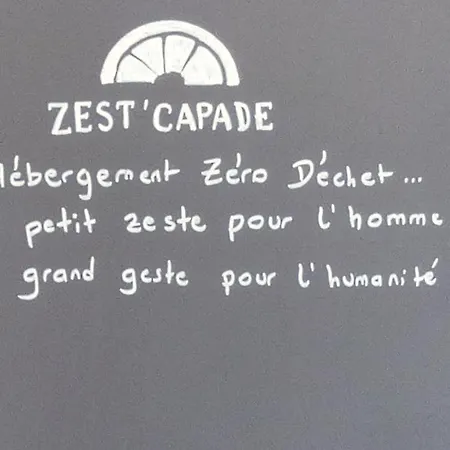 ZEST'CAPADE
Hébergement Zéro Déchet...
petit zeste pour l'homme
grand geste pour l'humanité